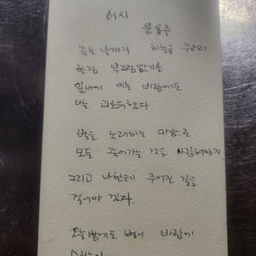 서시
윤동주
죽는 날까지 하늘을 우러러
한점 부끄럼없기를
잎새에 이는 바람에도
나는 괴로워했다
별을 노래하는 마음으로
모든 죽어가는 것을 사랑해야지
그리고 나한테 주어진 길을
걸어야 겠다.
오늘밤에도 별이 바람에